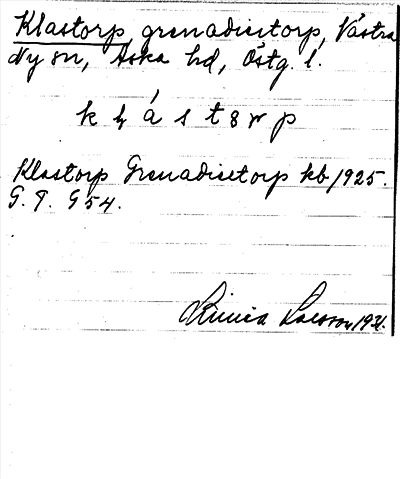 Klastorp, grenadiertorp, Västra
Ny sn, Aska hd, Östg. l.
k l á s t ɜ r p
Klastorp Grenadiertorp kb 1925.
G. P. G 54.
Larsson 1931.